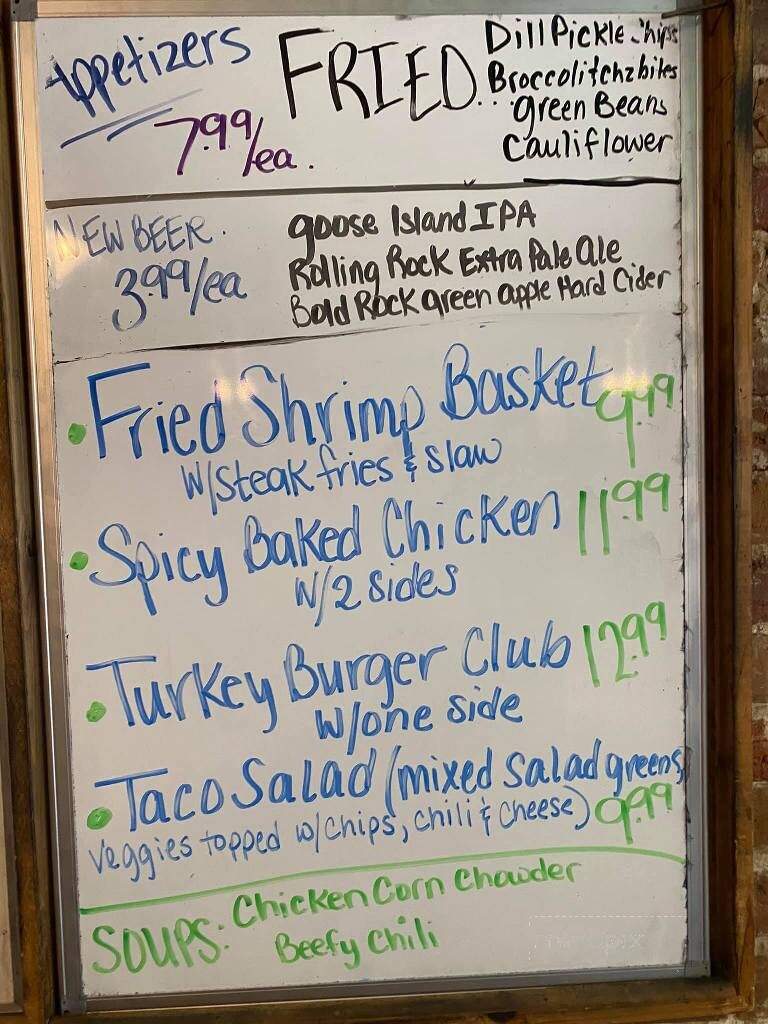 Appetizers
7.99/ea.
FRIED...
Dill Pickle Chips
Broccoli & chz bites
green Beans
Cauliflower
NEW BEER.
3.99/ea
goose Island IPA
Rolling Rock Extra Pale Ale
Bold Rock green apple Hard Cider
• Fried Shrimp Basket 9.99
W/steak fries & slaw
• Spicy Baked Chicken 11.99
W/2 sides
• Turkey Burger Club 12.99
W/one side
• Taco Salad (mixed salad greens,
veggies topped w/chips, chili & cheese) 9.99
SOUPS: Chicken Corn Chowder
Beefy Chili